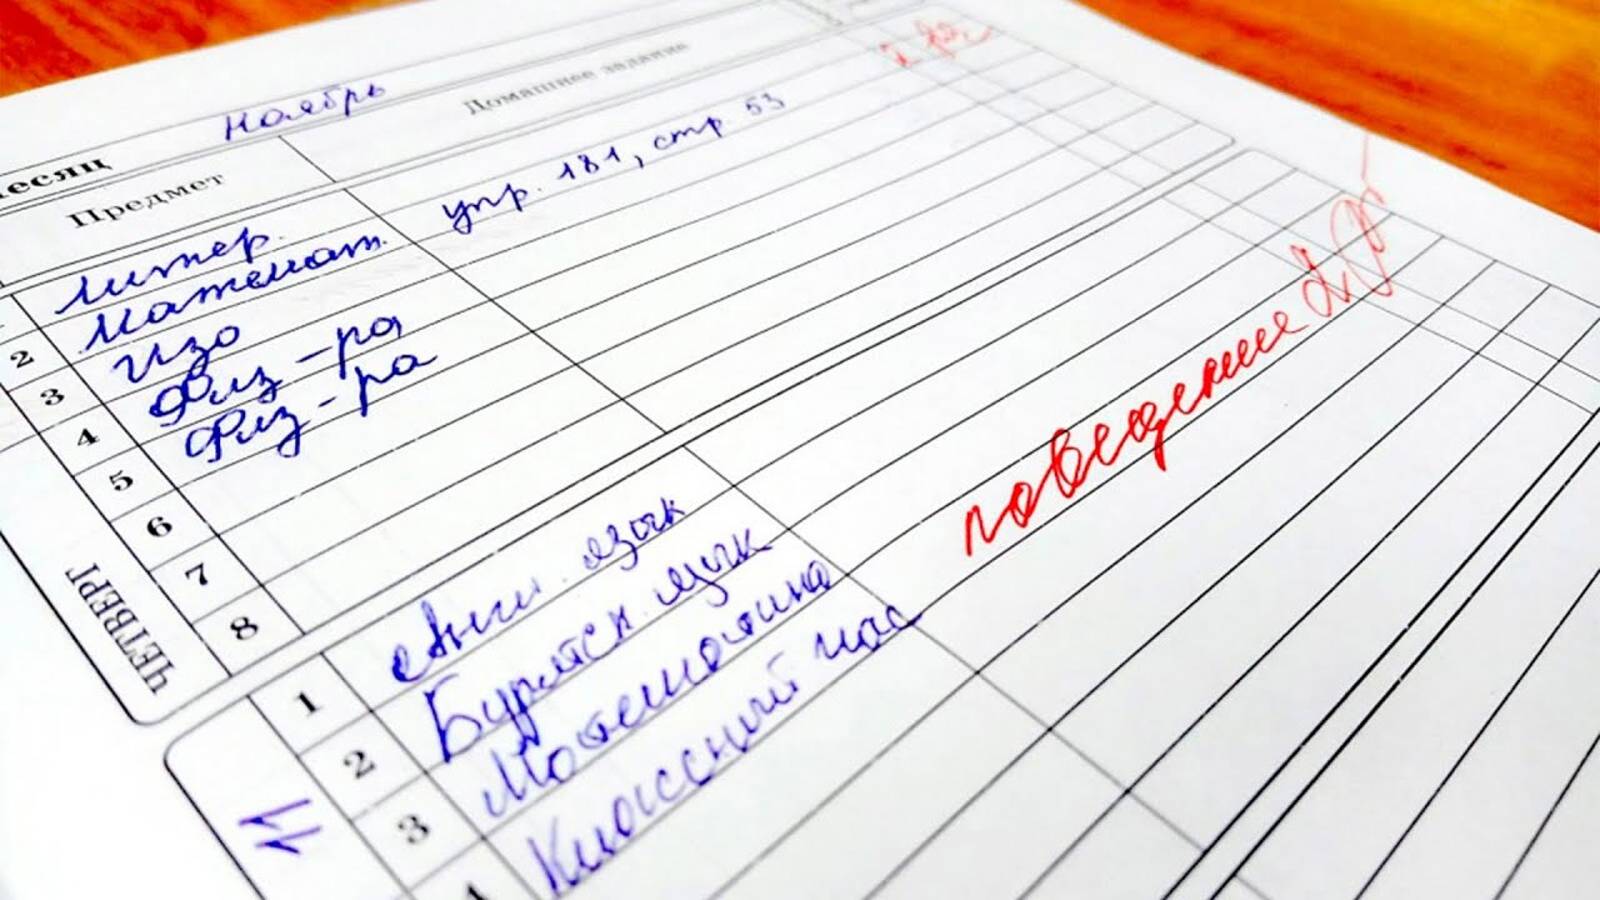 месяц ноябрь
Предмет Домашнее задание
литер.
2 математ. упр. 181, стр. 53
3 Изо
4 Физ-ра
5 Физ-ра
6
7
8
ЧЕТВЕРГ
1 Англ. язык
2 Бурятск. язык поведение 2
3 Математика
4 Классный час
11